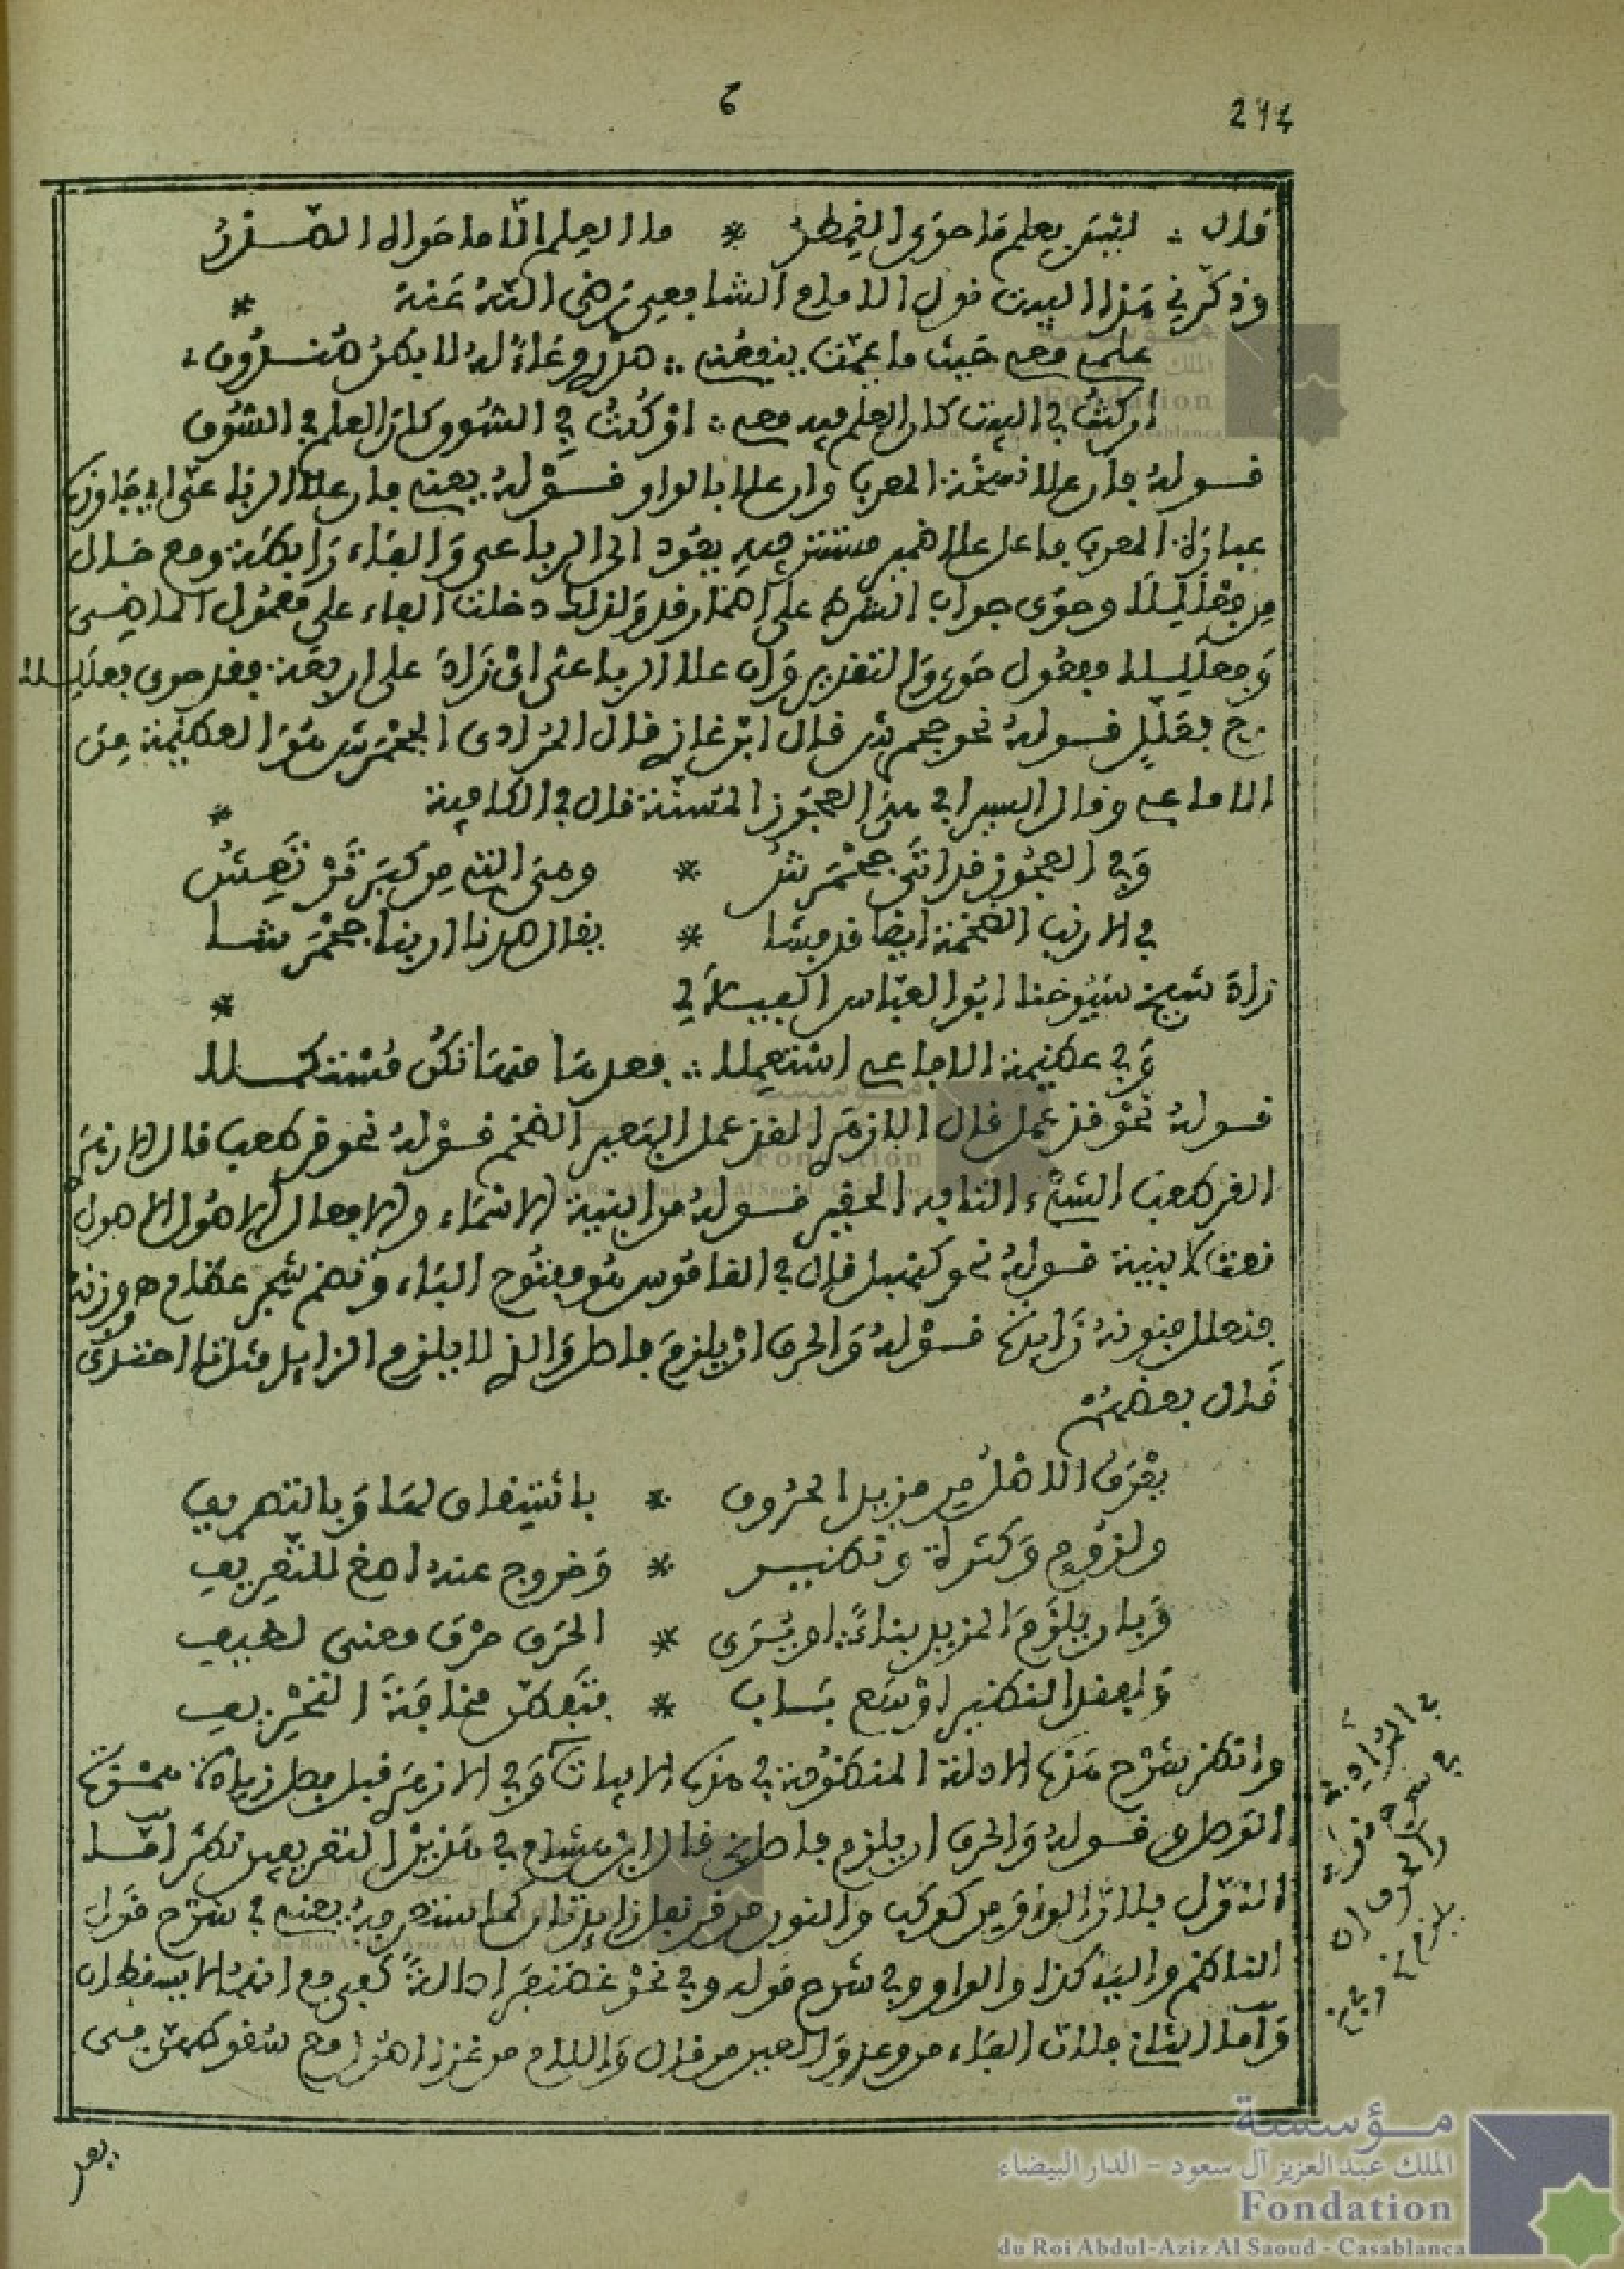 6
214
قال ∴ ليس بعلم ما حوى القمطر * ما العلم الا ما حواه الصدر
وذكرني هذا البيت قول الامام الشافعي رضي الله عنه *
علمي معي حيث ما يممت ينفعني ∴ صدري وعاء له لا بطن صندوق
ان كنت في البيت كان العلم فيه معي ∴ او كنت في السوق كان العلم في السوق
قوله فان علا نسخة المعرب وان علا بالواو قوله يعني فان علا الرباعي اي جاوزه
عبارة المعرب فاعل علا ضمير مستتر فيه يعود الى الرباعي والفاء رابطة ومع حال
من فعلل وحوى جواب الشرط على اضمار قد ولذلك دخلت الفاء على الماضي
وفعلل مفعول حوى والتقدير وان علا الرباعي اي زاد على اربعة فقد حوى فعللا
مع فعلل قوله نحو جحمرش قال ابن غازي قال المرادي الجحمرش هو العظيمة من
الافاعي وقال السيرافي هي العجوز المسنة قال في الكافية *
وفي العجوز قد اتى جحمرش * وهي التي من كبر ترتعش
في الارنب الضخمة ايضا قد فشا * يقال صدنا ارنبا جحمرشا
زاد شيخ شيوخنا ابو العباس *
وفي عظيمة الافاعي استعملا ∴ فعدها تكن مستكملا
قوله نحو قذعمل قال الازهري القذعمل البعير الضخم قوله نحو قرطعب قال الازهري
القرطعب الشيء التافه الحقير قوله من ابنية الاسماء والافعال الاصول الاصول
نعت لابنية قوله نحو كنهبل قال في القاموس هو مفتوح الباء وتضم شجر عظام ه‍ وزنه
فنعلل فنونه زايدة قوله والحرف ان يلزم فاصل والذي لا يلزم الزايد مثل تا احتذي
قال بعضهم
يعرف الاصل من مزيد الحروف * باشتقاق لها وبالتصريف
ولزوم وكثرة ونظير * وخروج عنه اصغ للتعريف
وبان يلزم المزيد بناء او يرى * الحرف حرف معنى لطيف
ولفقد النظير اوسع باب * فتفطن مخافة التحريف
وانظر شرح هذه الادلة المنظومة في هذه الابيات وفي الازهري قبل فصل زيادة همزة
الوصل قوله والحرف ان يلزم فاصل الخ قال ابن هشام في هذين التعريفين نظر اما
الاول فلان الواو من كوكب والنون من قرنفل زايدتان كما ستعرفه يعني في شرح قول
الناظم والياء كذا والواو وفي شرح قوله وفي نحو غضنفر اصالة كفي مع انهما لا يسقطان
واما الثاني فلان الفاء من وعد والعين من قال واللام من غزا اصول مع سقوطهن في
يعد